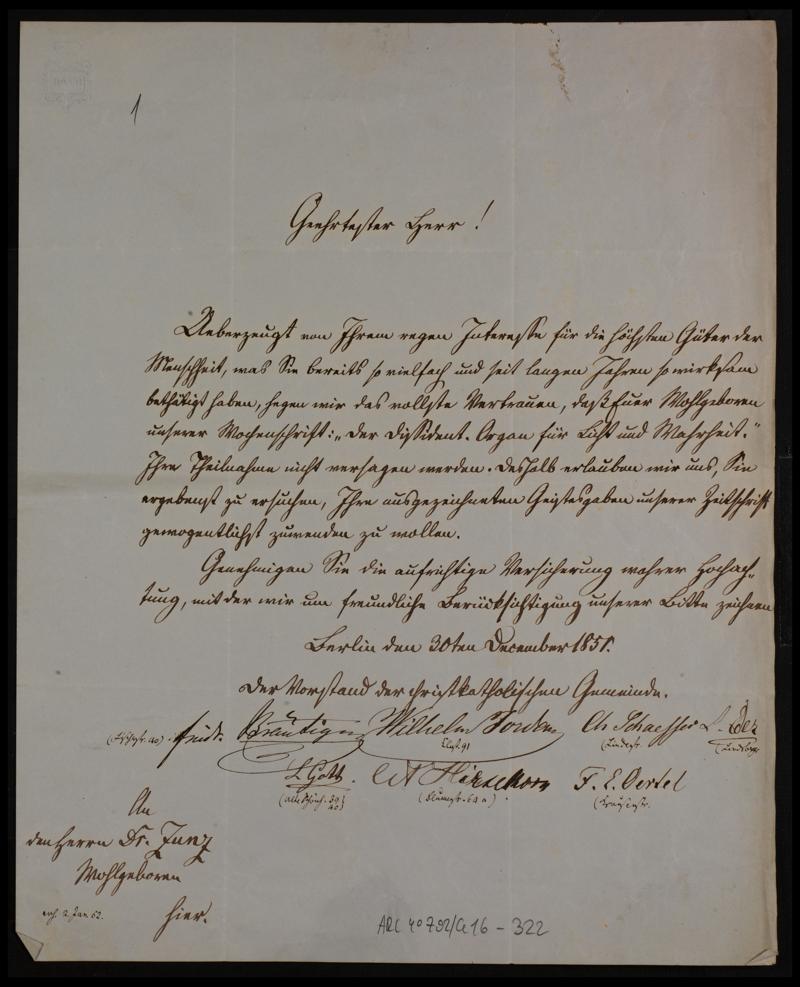 1
Geehrtester Herr!
Ueberzeugt von Ihrem regen Interesse für die höchsten Güter der
Menschheit, was Sie bereits so vielfach und seit langen Jahren so wirksam
bethätigt haben, hegen wir das vollste Vertrauen, daß Euer Wohlgeboren
unserer Wochenschrift: „Der Dissident. Organ für Licht und Wahrheit."
Ihre Theilnahme nicht versagen werden. Deshalb erlauben wir uns, Sie
ergebenst zu ersuchen, Ihre ausgezeichneten Geistesgaben unserer Zeitschrift
gewogentlichst zuwenden zu wollen.
Genehmigen Sie die aufrichtige Versicherung wahrer Hochach-
tung, mit der wir um freundliche Berücksichtigung unserer Bitte zeichnen
Berlin den 30ten December 1851.
Der Vorstand der christkatholischen Gemeinde.
Wilhelm Jordan Ch Schaeffer
L Gott. F. E. Oertel
An
den Herrn Dr. Zunz
Wohlgeboren
hier.
2 Jan. 52.
ARC 4° 792/G16 - 322